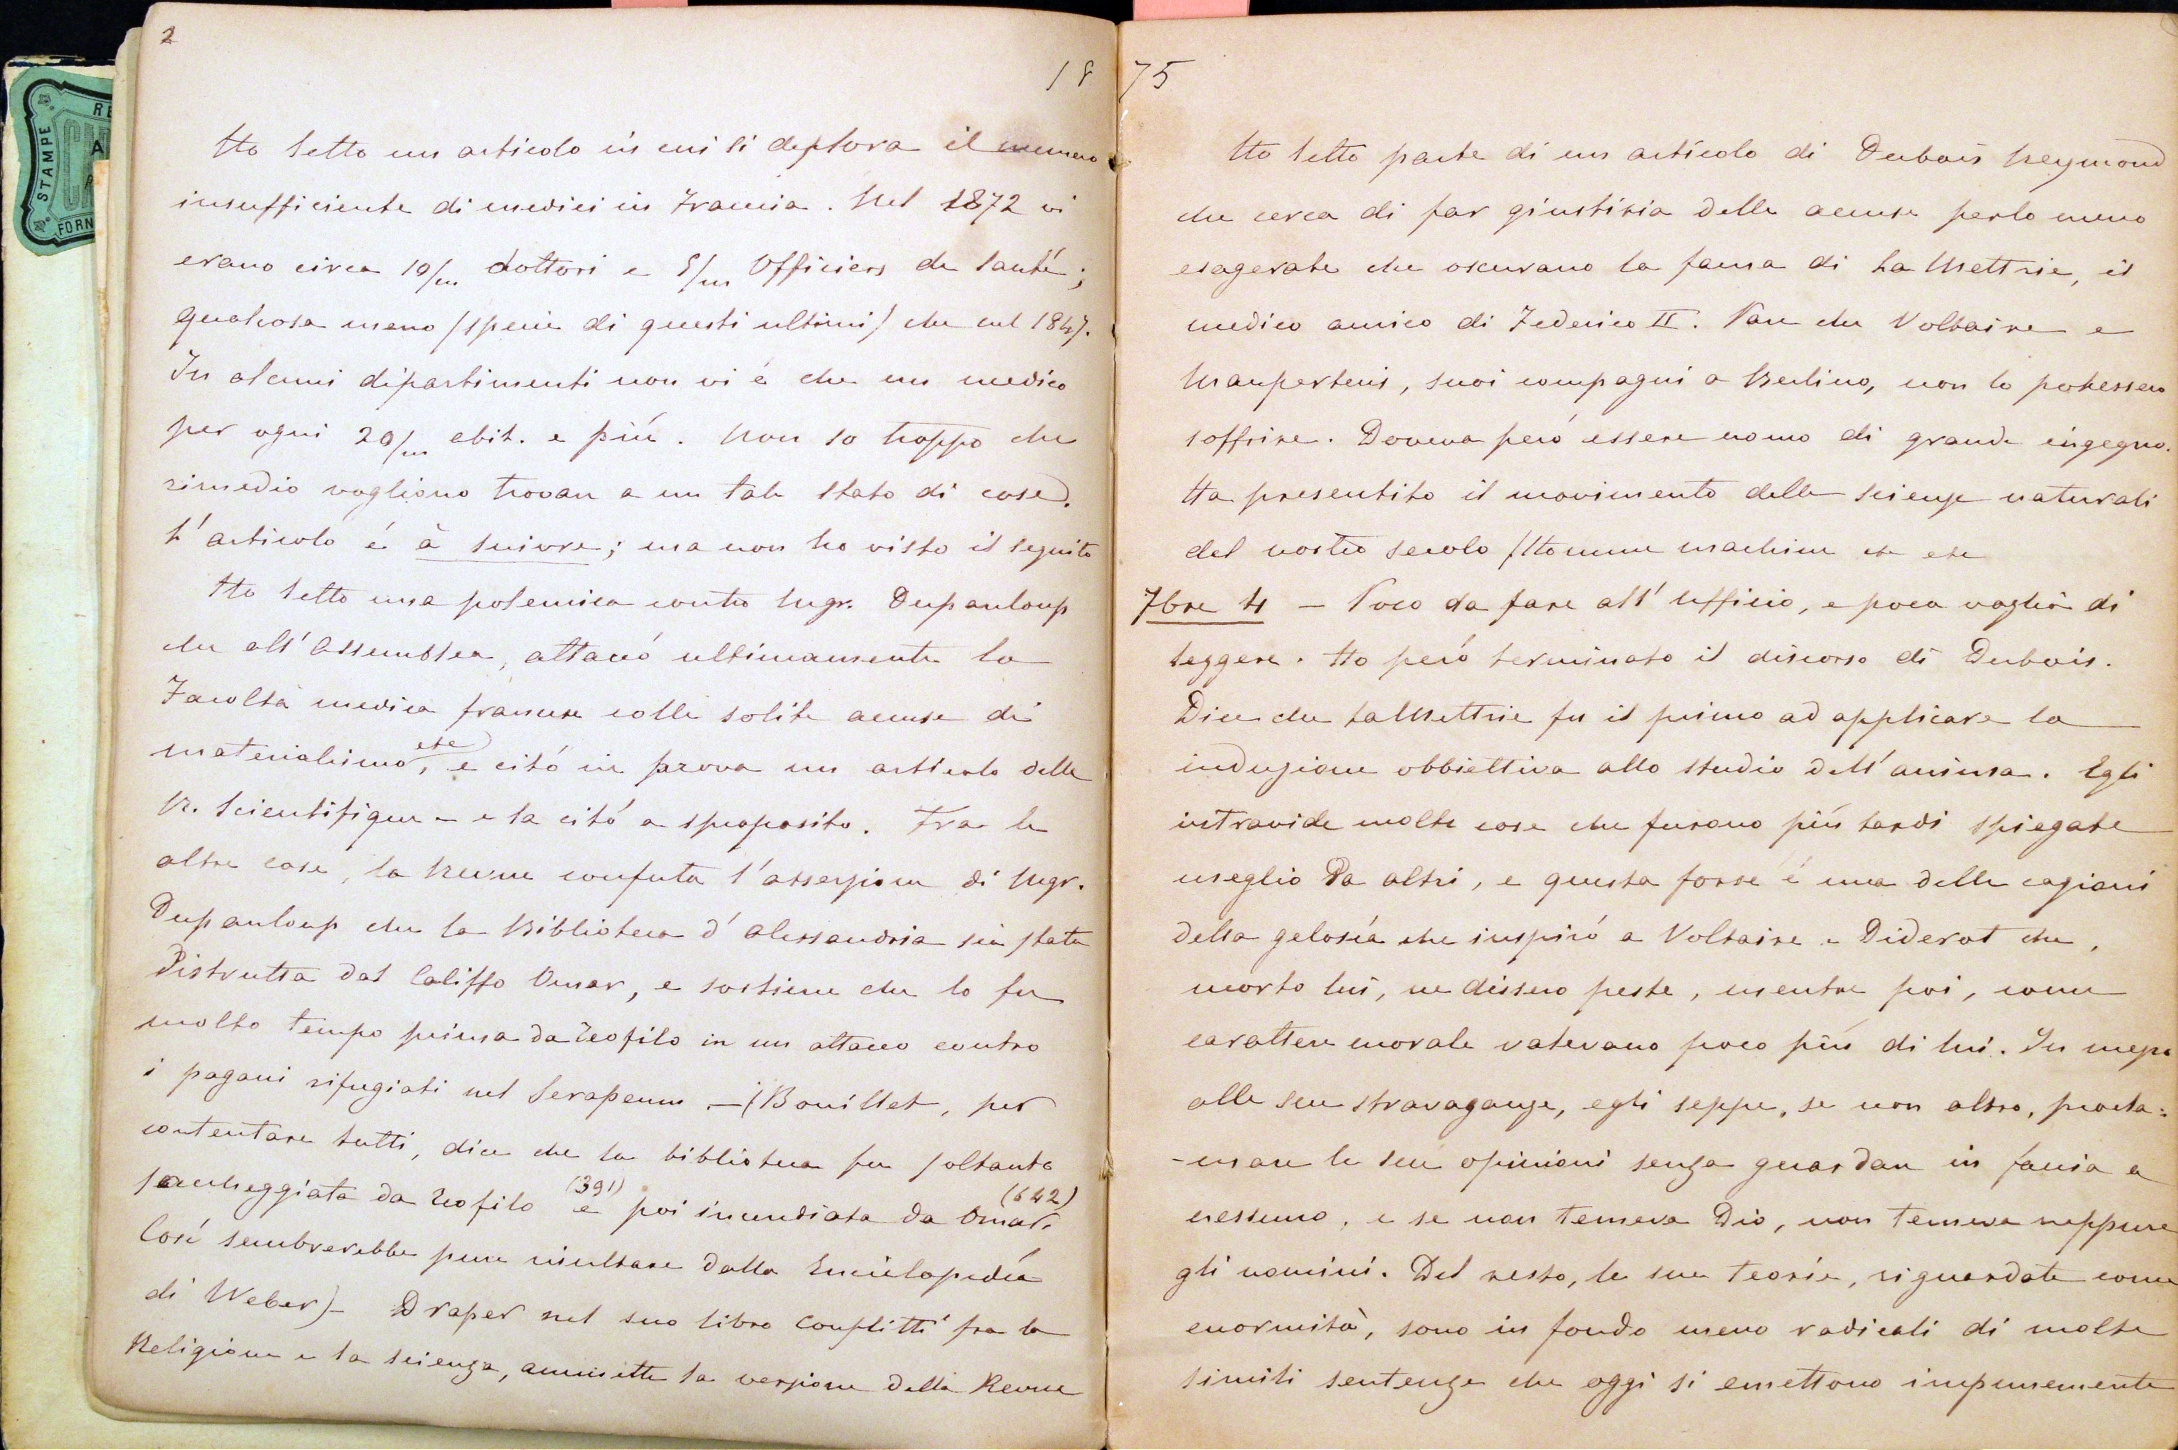 2
18
Ho letto un articolo in cui si deplora il numero
insufficiente di medici in Francia. Nel 1872 vi
erano circa 10/m dottori e 5/m Officiers de Santé;
qualcosa meno (specie di questi ultimi) che nel 1847.
In alcuni dipartimenti non vi é che un medico
per ogni 20/m abit. e piú. Non so troppo che
rimedio vogliono trovare a un tale stato di cose.
L'articolo é à suivre; ma non ho visto il seguito
Ho letto una polemica contro Mgr. Dupanloup
che all'Assemblea, attaccó ultimamente la
Facoltà medica francese colle solite accuse di
materialismo, etc e citó in prova un articolo della
R. Scientifique - e la citó a sproposito. Fra le
altre cose, la Revue confuta l'asserzione di Mgr.
Dupanloup che la Biblioteca d'Alessandria sia stata
distrutta dal Califfo Omar, e sostiene che lo fu
molto tempo prima da Teofilo in un attacco contro
i pagani rifugiati nel Serapeum - (Bouillet, per
contentare tutti, dice che la biblioteca fu soltanto
saccheggiata da Teofilo (391) e poi incendiata da Omar (642).
Cosí sembrerebbe pure risultare dalla Enciclopedía
di Weber) - Draper nel suo libro Conflitti fra la
Religione e la scienza, ammette la versione della Revue
75
Ho letto parte di un articolo di Dubois Reymond
che cerca di far giustizia delle accuse perlo meno
esagerate che oscurano la fama di La Mettrie, il
medico amico di Federico II. Pare che Voltaire e
Maupertuis, suoi compagni a Berlino, non lo potessero
soffrire. Doveva peró essere uomo di grande ingegno.
Ha presentito il movimento delle scienze naturali
del nostro secolo (Homme machine etc etc
7bre 4 - Poco da fare all'Ufficio, e poca voglia di
leggere. Ho peró terminato il discorso di Dubois.
Dice che LaMettrie fu il primo ad applicare la
induzione obbiettiva allo studio dell'anima. Egli
intravide molte cose che furono piú tardi spiegate
meglio da altri, e questa forse é una delle cagioni
della gelosía che inspiró a Voltaire e Diderot che,
morto lui, ne dissero peste, mentre poi, come
carattere morale valevano poco piú di lui. In mezzo
alle sue stravaganze, egli seppe, se non altro, procla=
-mare le sue opinioni senza guardare in faccia a
nessuno, e se non temeva Dio, non temeva neppure
gli uomini. Del resto, le sue teorie, riguardate come
enormità, sono in fondo meno radicali di molte
simili sentenze che oggi si emettono impunemente
STAMPE
FORN